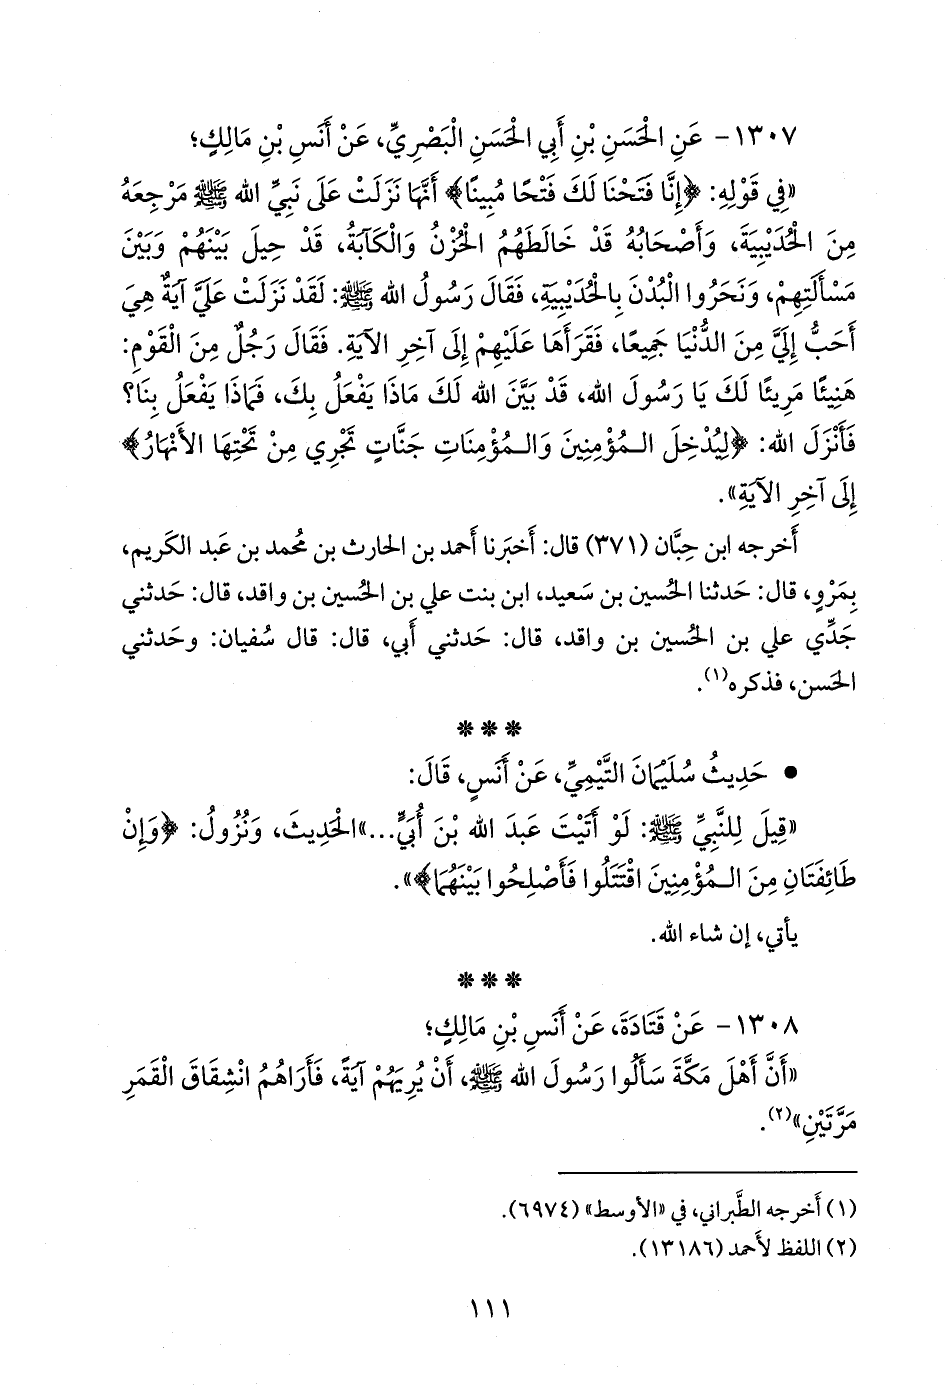 ١٣٠٧- عَنِ الْحَسَنِ بْنِ أَبِي الْحَسَنِ الْبَصْرِيِّ، عَنْ أَنَسِ بْنِ مَالِكٍ؛
«فِي قَوْلِهِ: ﴿إِنَّا فَتَحْنَا لَكَ فَتْحًا مُبِينًا﴾ أَنَّهَا نَزَلَتْ عَلَى نَبِيِّ الله ﷺ مَرْجِعَهُ
مِنَ الْحُدَيْبِيَةِ، وَأَصْحَابُهُ قَدْ خَالَطَهُمُ الْحُزْنُ وَالْكَآبَةُ، قَدْ حِيلَ بَيْنَهُمْ وَبَيْنَ
مَسْأَلَتِهِمْ، وَنَحَرُوا الْبُدْنَ بِالْحُدَيْبِيَةِ، فَقَالَ رَسُولُ الله ﷺ: لَقَدْ نَزَلَتْ عَلَيَّ آيَةٌ هِيَ
أَحَبُّ إِلَيَّ مِنَ الدُّنْيَا جَمِيعًا، فَقَرَأَهَا عَلَيْهِمْ إِلَى آخِرِ الآيَةِ. فَقَالَ رَجُلٌ مِنَ الْقَوْمِ:
هَنِيئًا مَرِيئًا لَكَ يَا رَسُولَ الله، قَدْ بَيَّنَ الله لَكَ مَاذَا يَفْعَلُ بِكَ، فَمَاذَا يَفْعَلُ بِنَا؟
فَأَنْزَلَ الله: ﴿لِيُدْخِلَ الـمُؤْمِنِينَ وَالـمُؤْمِنَاتِ جَنَّاتٍ تَجْرِي مِنْ تَحْتِهَا الأَنْهَارُ﴾
إِلَى آخِرِ الآيَةِ».
أَخرجه ابن حِبَّان (٣٧١) قال: أَخبَرنا أَحمد بن الحارث بن مُحمد بن عَبد الكَريم،
بِمَرْوٍ، قال: حَدثنا الحُسين بن سَعيد، ابن بنت علي بن الحُسين بن واقد، قال: حَدثني
جَدِّي علي بن الحُسين بن واقد، قال: حَدثني أَبي، قال: قال سُفيان: وحَدثني
الحَسن، فذكره(١).
* * *
• حَدِيثُ سُلَيْمَانَ التَّيْمِيِّ، عَنْ أَنَسٍ، قَالَ:
«قِيلَ لِلنَّبِيِّ ﷺ: لَوْ أَتَيْتَ عَبدَ الله بْنَ أُبَيٍّ...»الْحَدِيثَ، وَنُزُولُ: ﴿وَإِنْ
طَائِفَتَانِ مِنَ الـمُؤْمِنِينَ اقْتَتَلُوا فَأَصْلِحُوا بَيْنَهُمَا﴾».
يأتي، إن شاء الله.
* * *
١٣٠٨- عَنْ قَتَادَةَ، عَنْ أَنَسِ بْنِ مَالِكٍ؛
«أَنَّ أَهْلَ مَكَّةَ سَأَلُوا رَسُولَ الله ﷺ، أَنْ يُرِيَهُمْ آيَةً، فَأَرَاهُمُ انْشِقَاقَ الْقَمَرِ
مَرَّتَيْنِ»(٢).
(١) أَخرجه الطَّبراني، في «الأوسط» (٦٩٧٤).
(٢) اللفظ لأَحمد (١٣١٨٦).
١١١